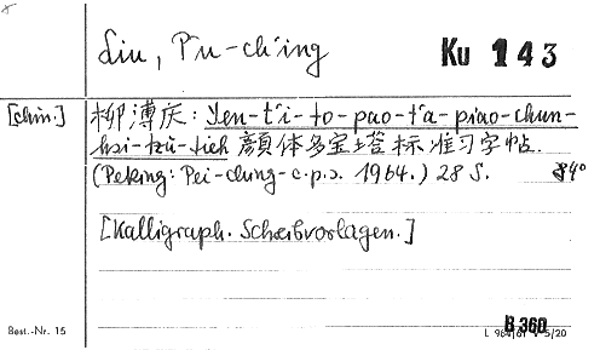 Liu, P'u-ch'ing
Ku 143
[chin.]
柳溥庆: Yen-t'i-to-pao-t'a-piao-chun-
hsi-tzŭ-tieh 顔体多宝塔标准习字帖.
(Peking: Pei-ching-c.p.s. 1964.) 28 S. 4°
[Kalligraph. Schreibvorlagen.]
Best.-Nr. 15
B 360